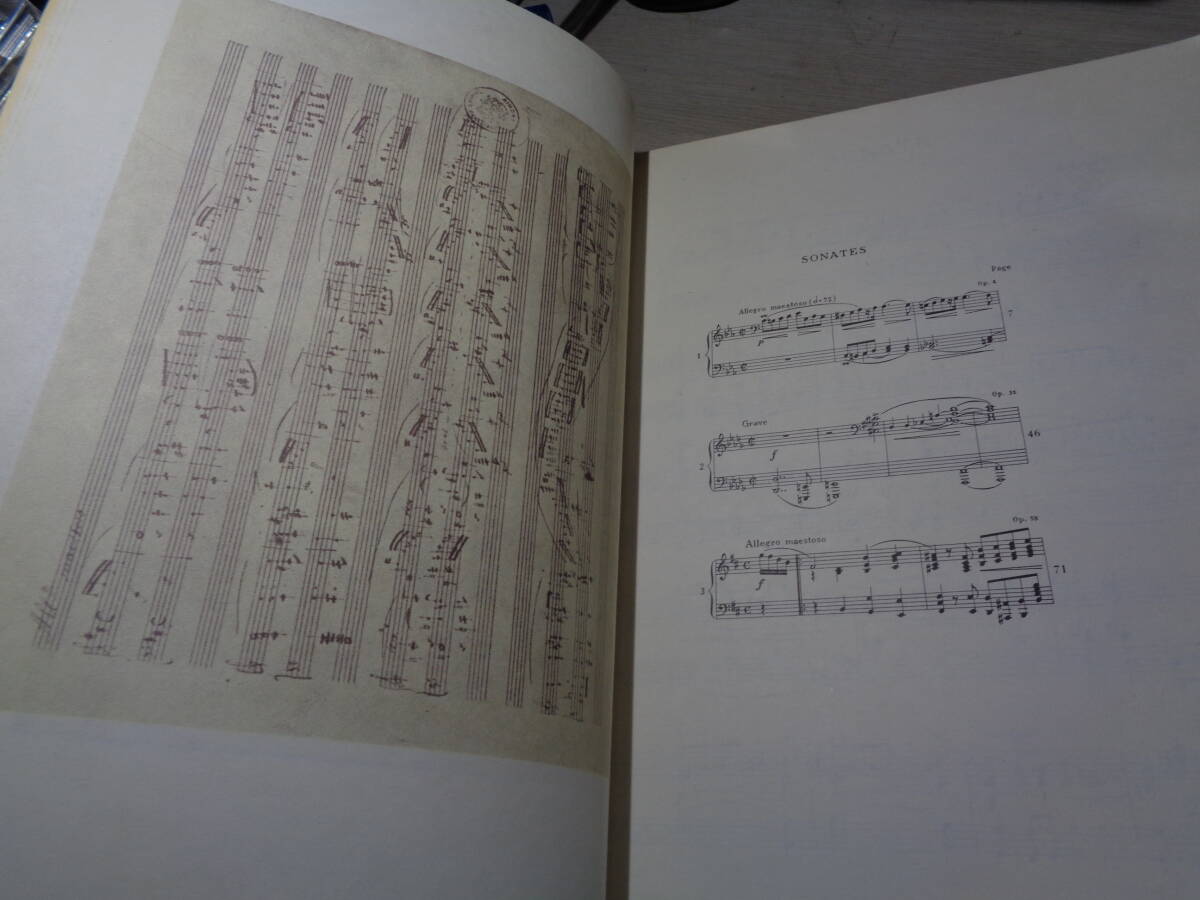 SONATES
Page
Op. 4
Allegro maestoso (𝅗𝅥=72)
1
p
7
Op. 35
Grave
2
f
46
Op. 58
Allegro maestoso
3
f
71